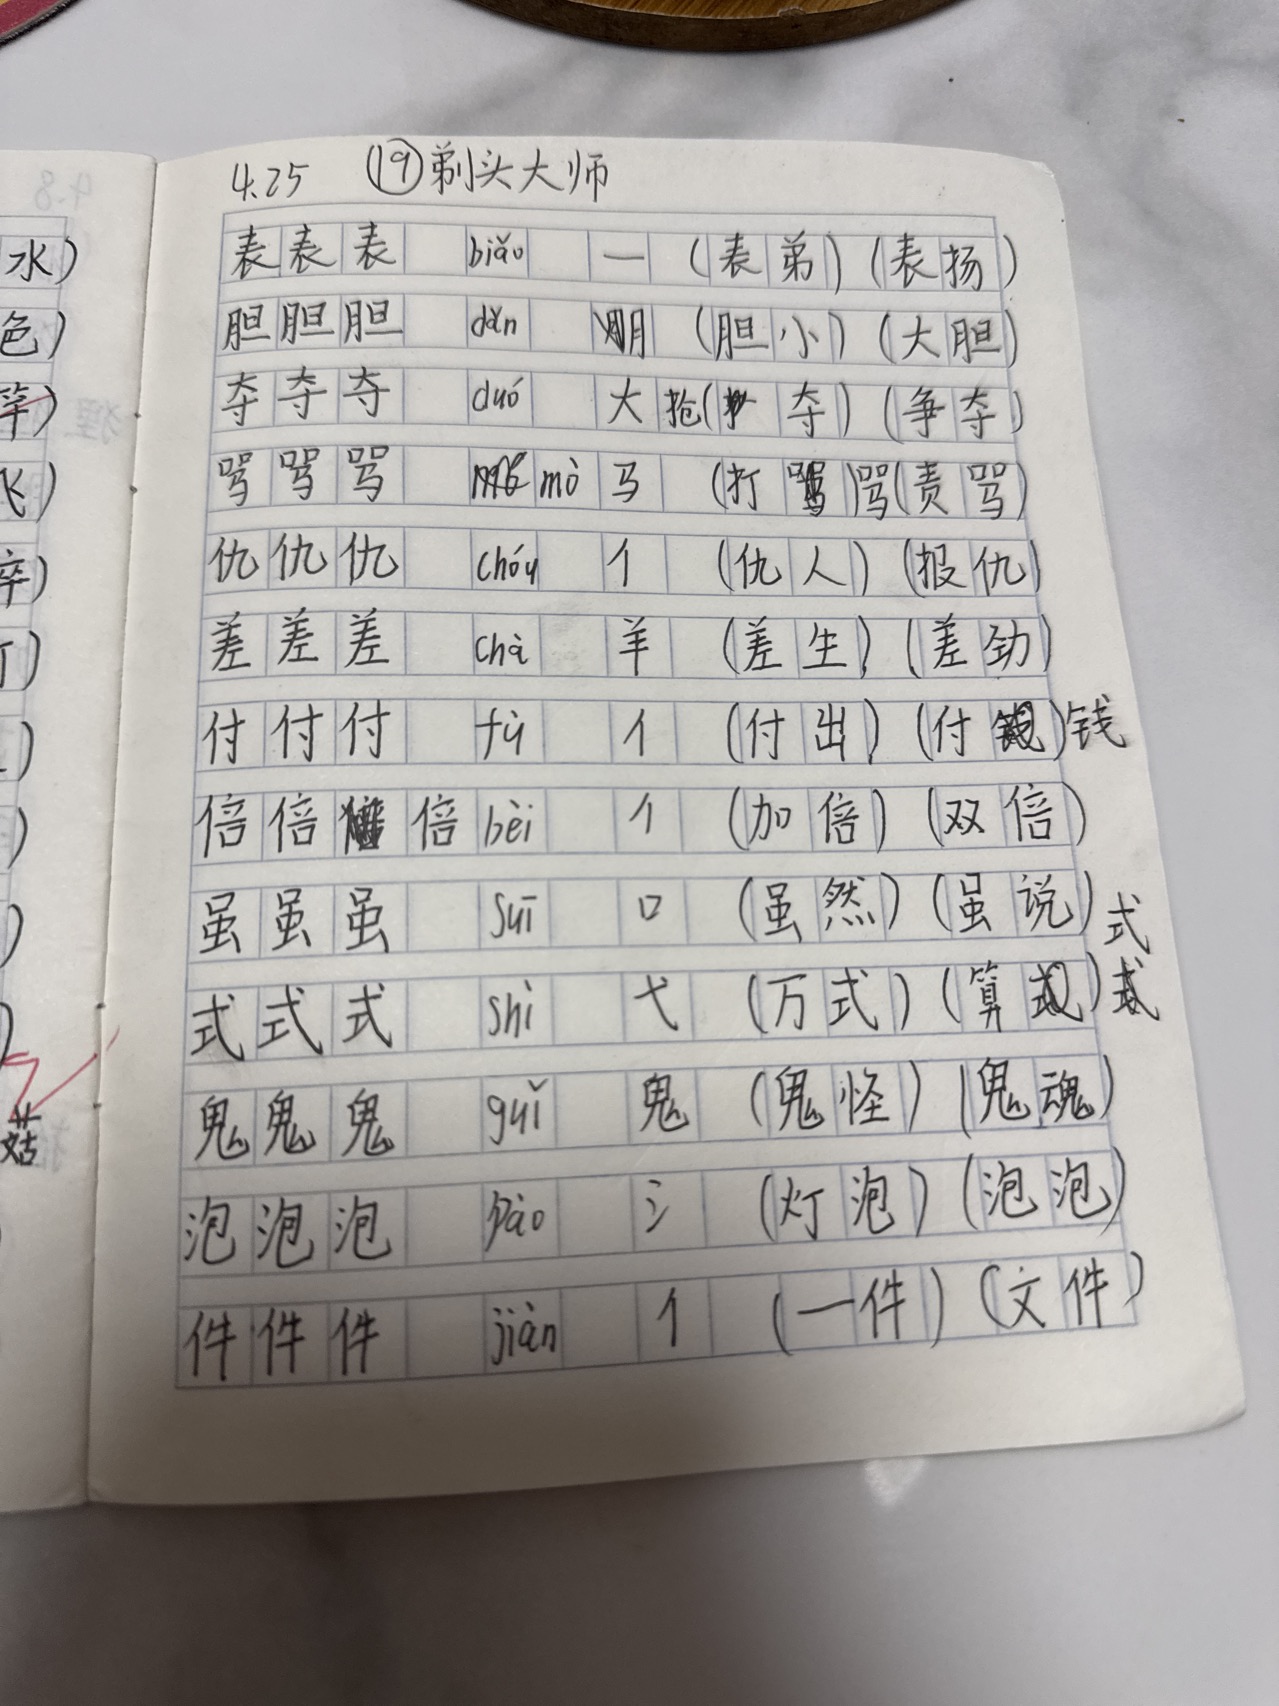 4.25 ⑲剃头大师
水)
表表表 biǎo 一 (表弟)(表扬)
色)
胆胆胆 dǎn 月 (胆小)(大胆)
夺夺夺 duó 大 抢(夺)(争夺)
飞)
骂骂骂 mò 马 (打)骂(责骂)
仇仇仇 chóu 亻 (仇人)(报仇)
差差差 chà 羊 (差生)(差劲)
付付付 fù 亻 (付出)(付)钱
倍倍倍 bèi 亻 (加倍)(双倍)
虽虽虽 suī 口 (虽然)(虽说)
式
式式式 shì 弋 (万式)(算式)式
鬼鬼鬼 guǐ 鬼 (鬼怪)(鬼魂)
菇
泡泡泡 pào 氵 (灯泡)(泡泡)
件件件 jiàn 亻 (一件)(文件)